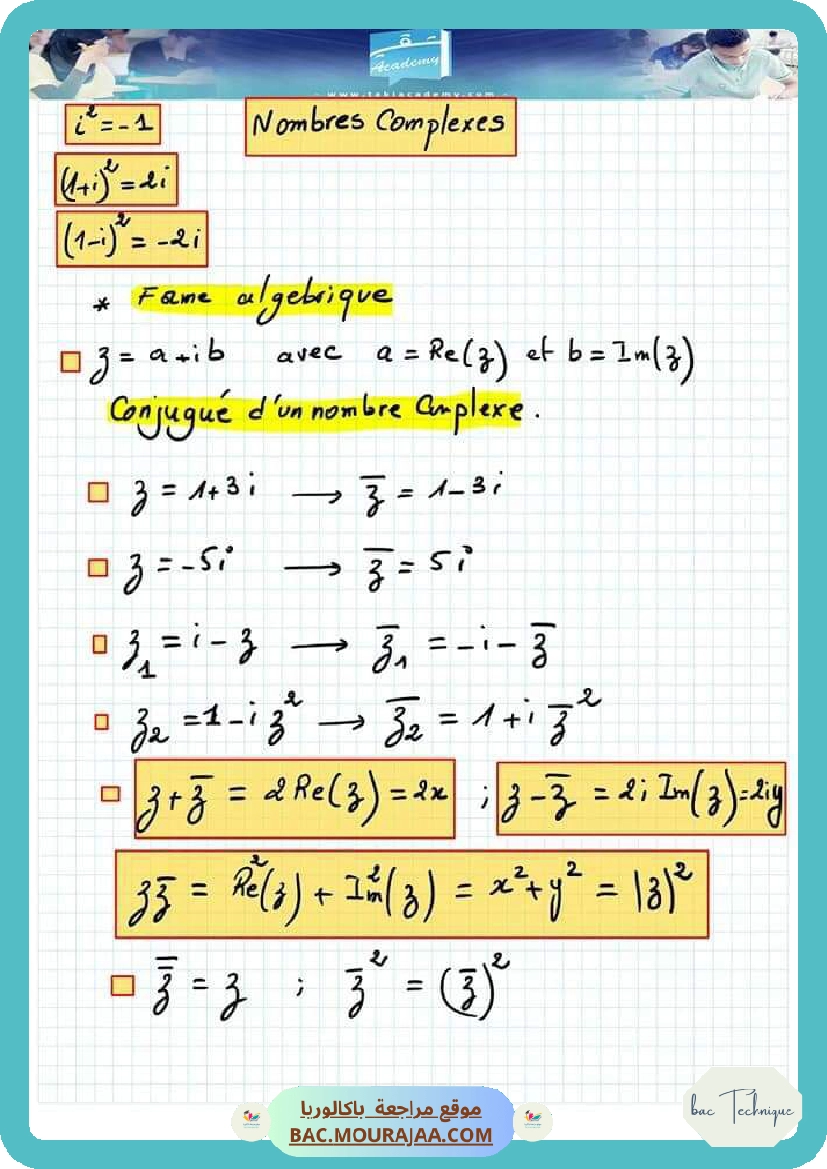 Academy
www.takiacademy.com
i² = -1
Nombres Complexes
(1+i)² = 2i
(1-i)² = -2i
* Forme algebrique
z = a+ib avec a = Re(z) et b = Im(z)
Conjugué d'un nombre Complexe.
z = 1+3i → z̅ = 1-3i
z = -5i → z̅ = 5i
z₁ = i - z → z̅₁ = -i - z̅
z₂ = 1-i z² → z̅₂ = 1+i z̅²
z + z̅ = 2 Re(z) = 2x ; z - z̅ = 2i Im(z) = 2iy
z z̅ = Re²(z) + Im²(z) = x² + y² = |z|²
z̿ = z ; z̅² = (z̅)²
موقع مراجعة باكالوريا
BAC.MOURAJAA.COM
bac Technique